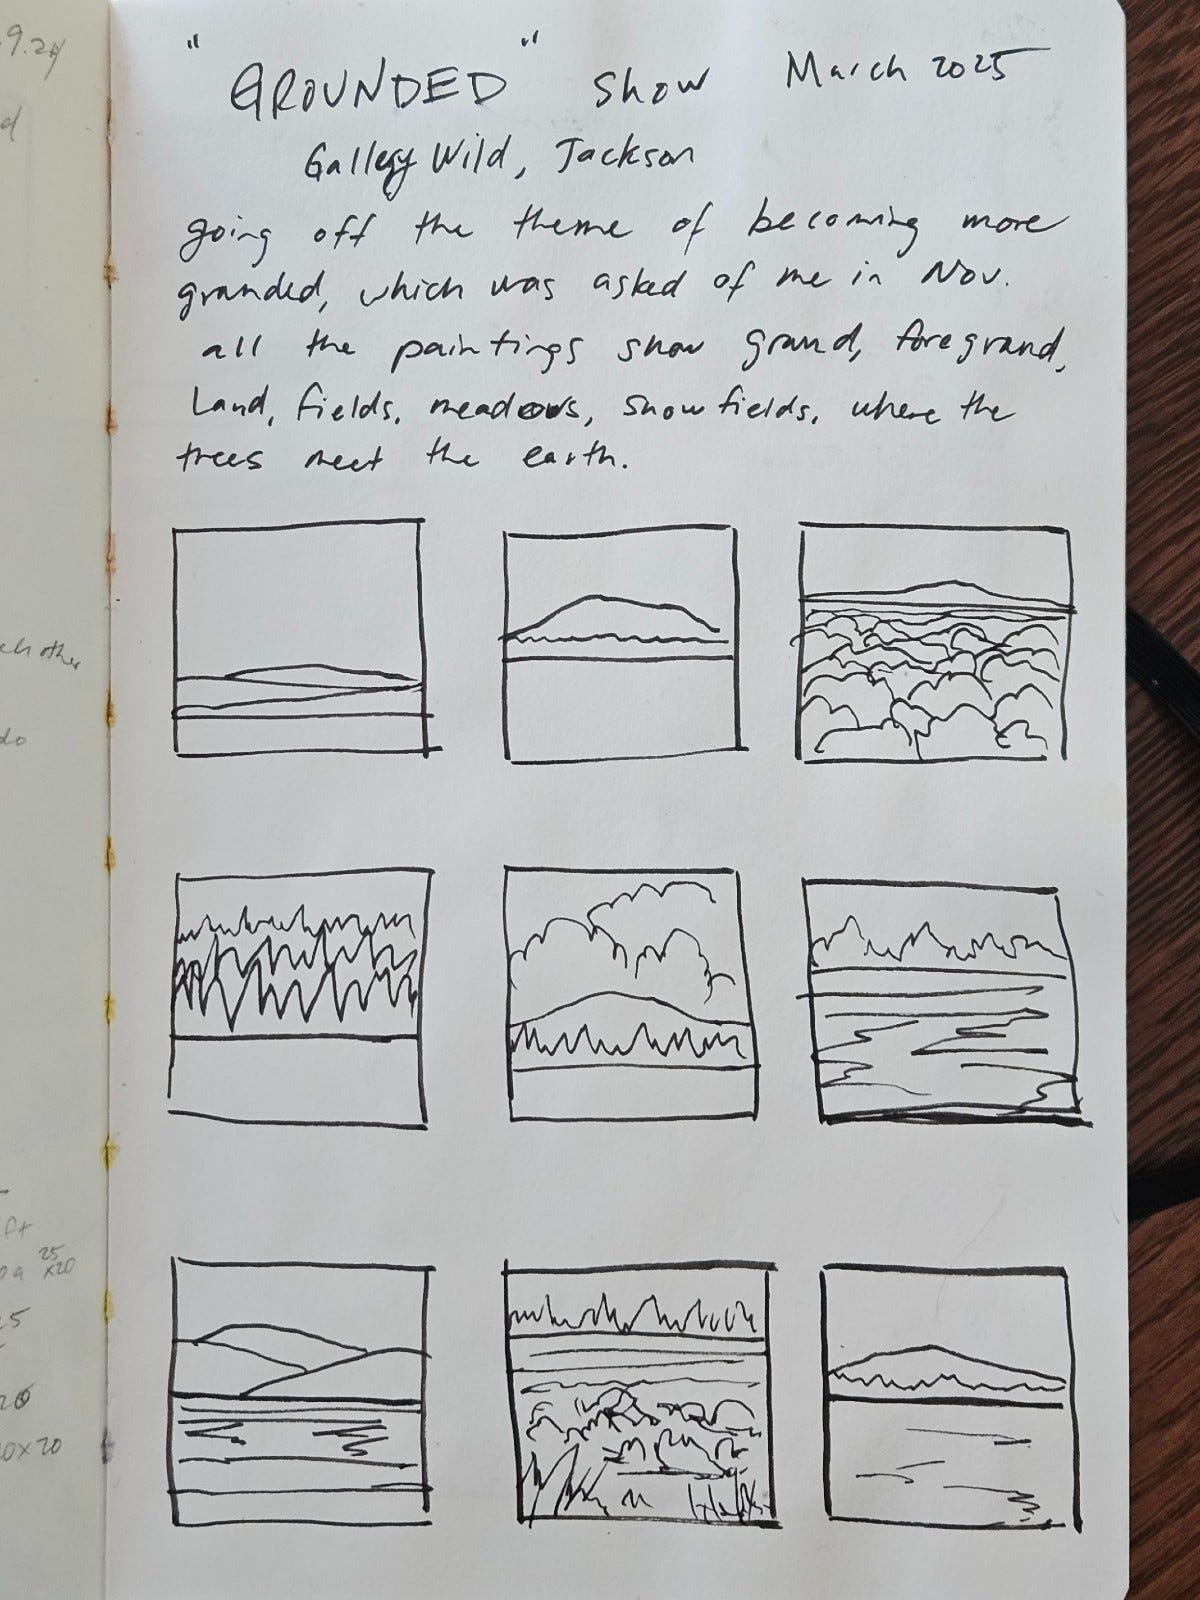 "GROUNDED" show March 2025
Gallery Wild, Jackson
going off the theme of becoming more
grounded, which was asked of me in Nov.
all the paintings show ground, foreground,
Land, fields, meadows, snowfields, where the
trees meet the earth.
.9.24
d
ch other
do
ft
25
x20
25
20
20x20